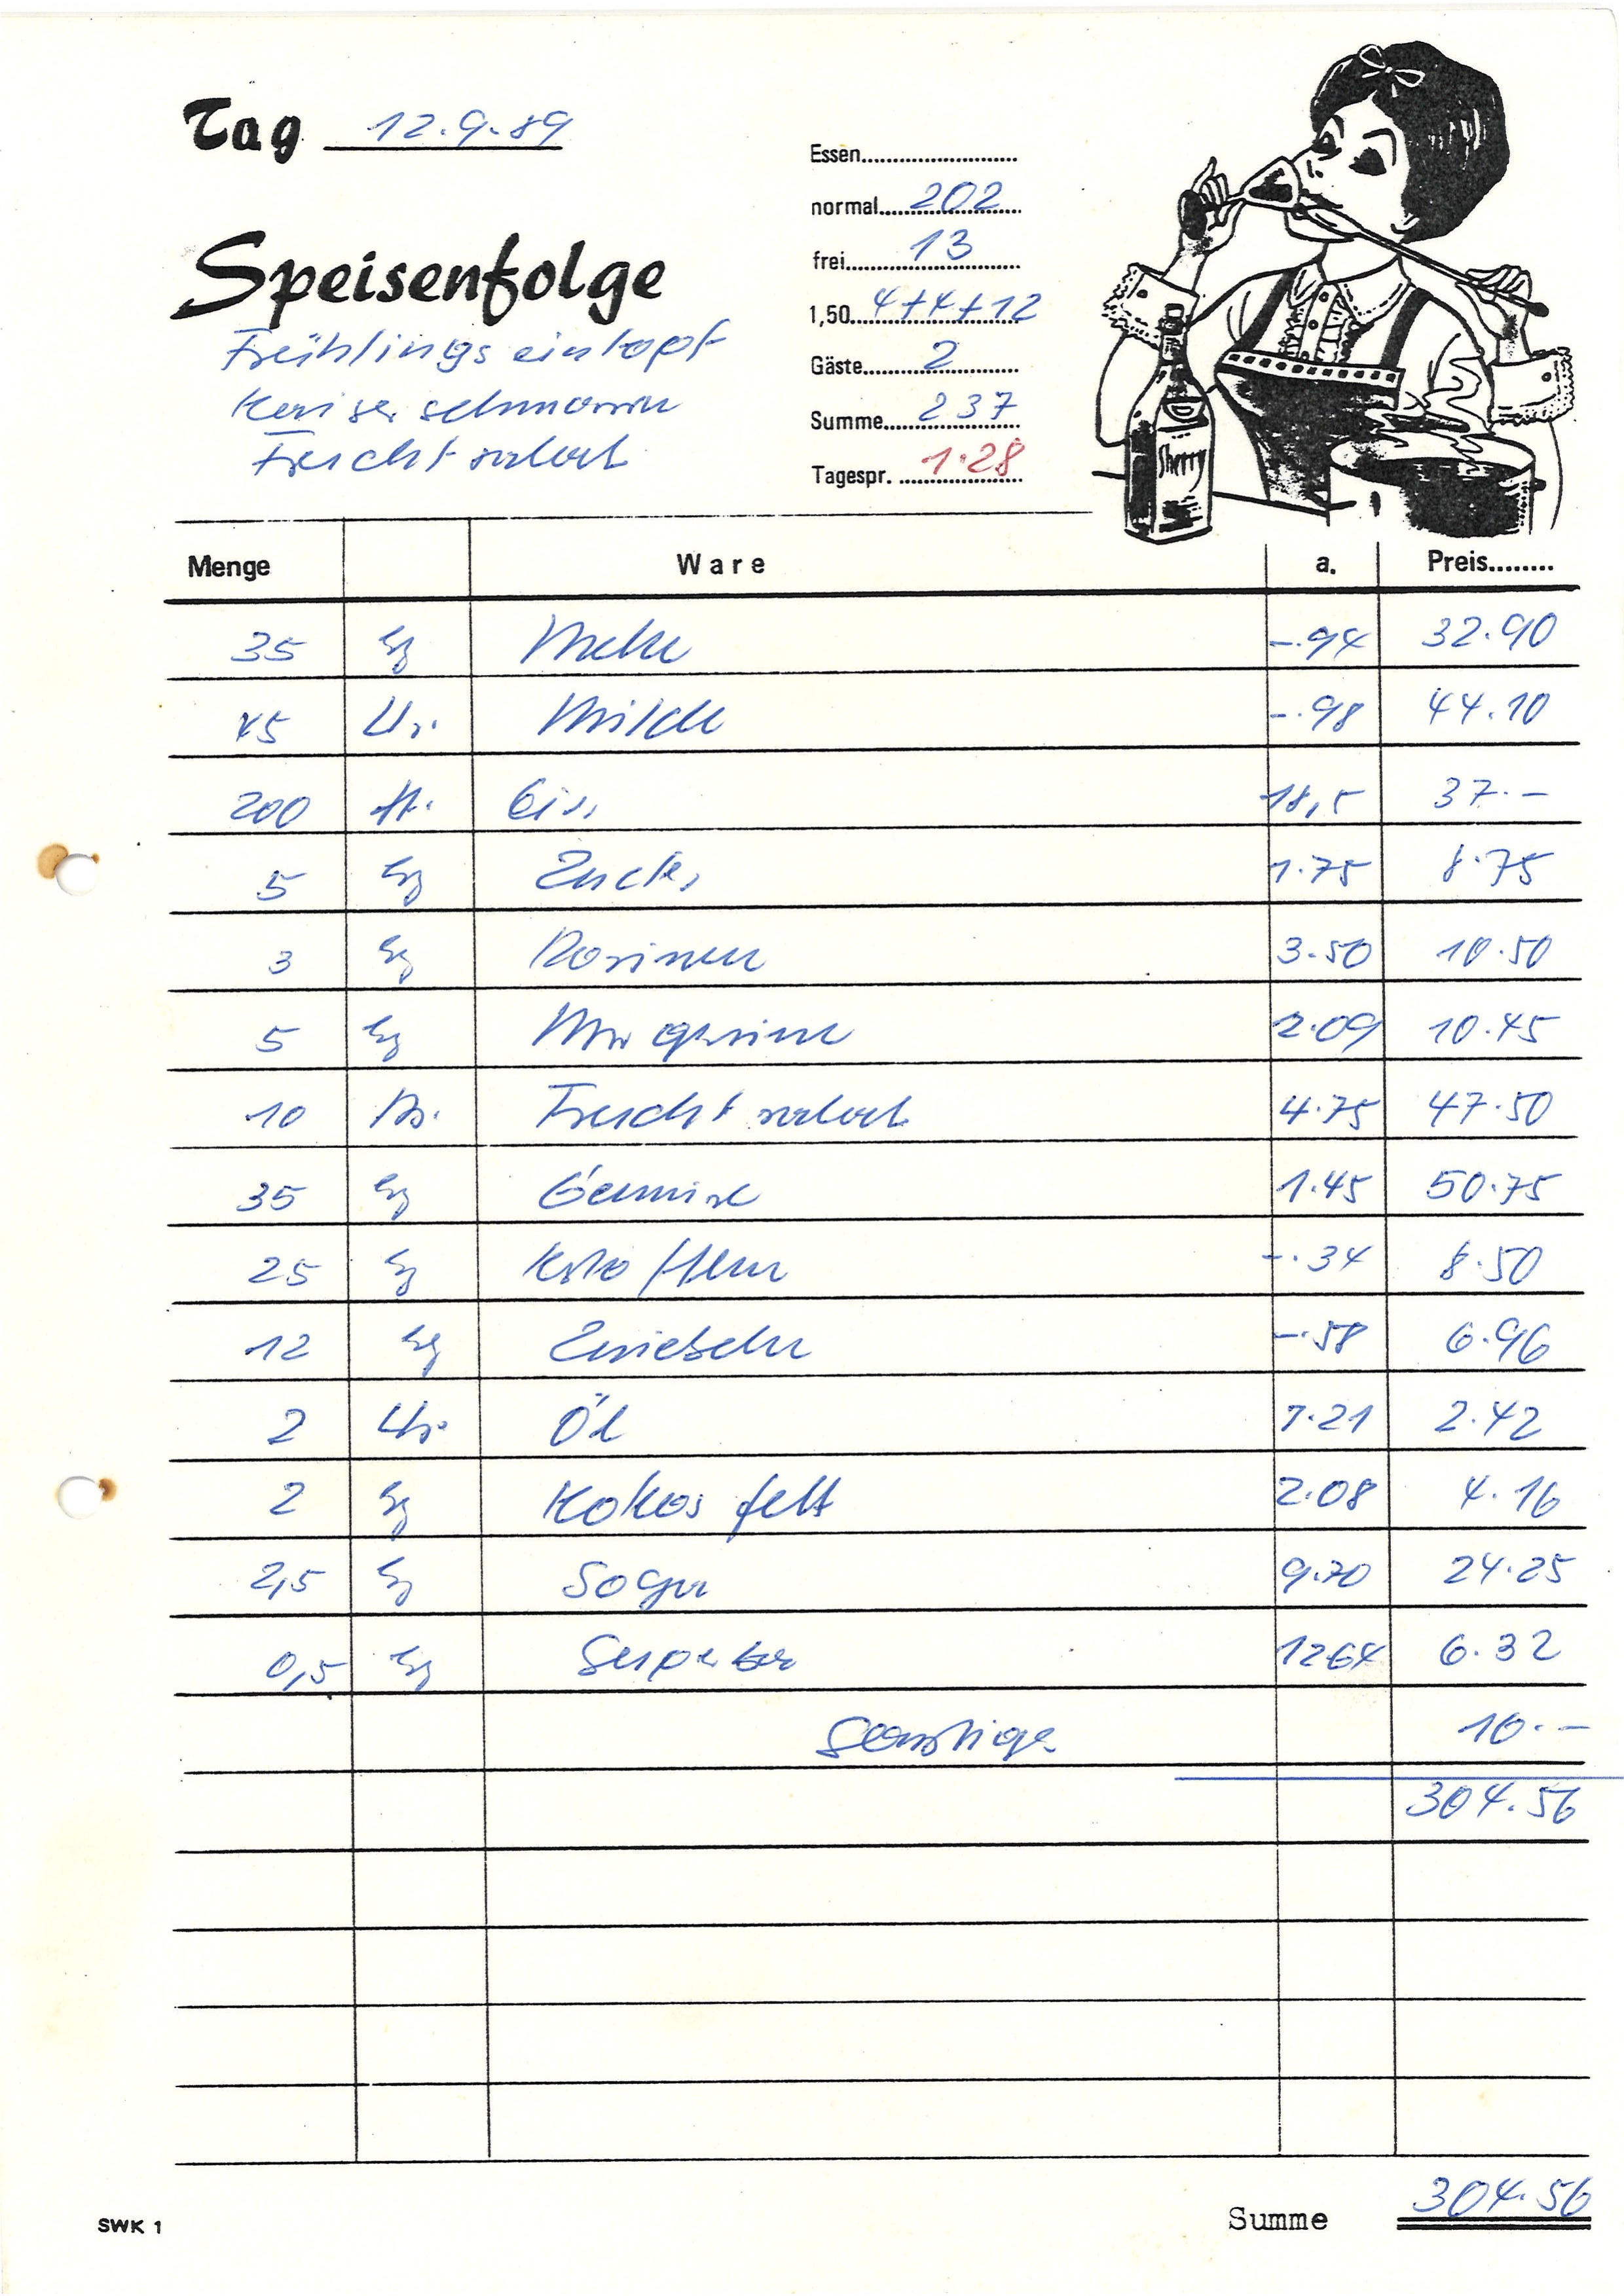 Tag 12.9.89
Speisenfolge
Frühlingseintopf
Kaiserschmarrn
Fruchtsalat
Essen
normal 202
frei 13
1,50 4+4+12
Gäste 2
Summe 237
Tagespr. 1.28
Sherry
Menge Ware a. Preis
35 kg Mehl -.94 32.90
45 Ltr. Milch -.98 44.10
200 St. Eier 18,5 37.-
5 kg Zucker 1.75 8.75
3 kg Rosinen 3.50 10.50
5 kg Margarine 2.09 10.45
10 Ds. Fruchtsalat 4.75 47.50
35 kg Gemüse 1.45 50.75
25 kg Kartoffeln -.34 8.50
12 kg Zwiebeln -.58 6.96
2 Ltr. Öl 1.21 2.42
2 kg Kokosfett 2.08 4.16
2,5 kg 9.70 24.25
0,5 kg 1264 6.32
Sonstige 10.-
304.56
Summe 304.56
SWK 1